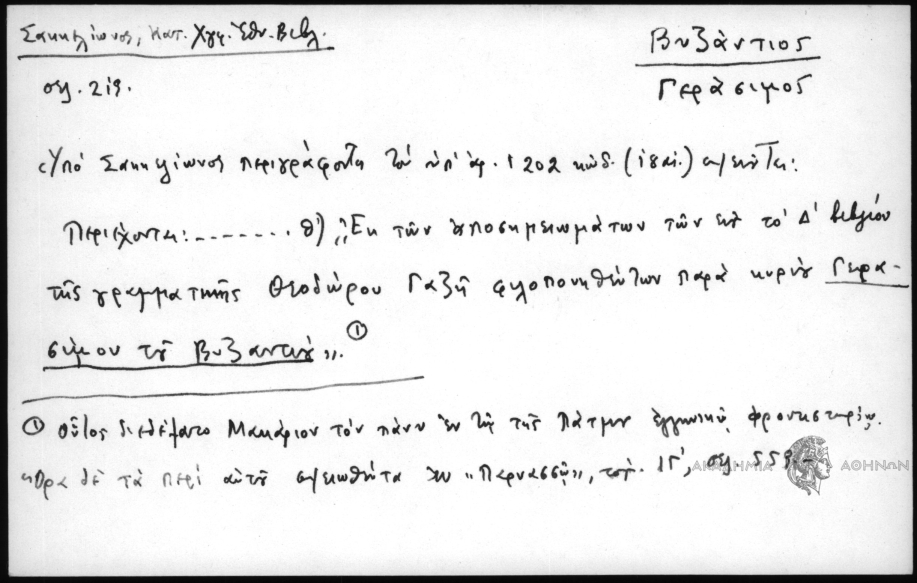 Σακκελίωνος, Κατ. Χγφ. Ἐθν. Βιβλ.
Βυζάντιος
Γεράσιμος
σελ. 219.
Ὑπό Σακκελίωνος περιγράφοντα τόν ὑπ' ἀρ. 1202 κώδ. (ιη αἰ.)
Περιέχονται: ........ θ) „Ἐκ τῶν ἀποσημειωμάτων τῶν εἰς τό Δ' βιβλίον
τῆς γραμματικῆς Θεοδώρου Γαζῆ φιλοπονηθέντων παρά κυρίου Γερα-
σίμου τοῦ Βυζαντίου”. ①
① Οὗτος διεδέξατο Μακάριον τόν πάνυ ἐν τῇ τῆς Πάτμου ἑλληνικῷ φροντιστηρίῳ.
Ὅρα δέ τά περί αὐτοῦ ἐν «Παρνασσῷ», τόμ. ΙΓ', σελ. 559.
ΑΚΑΔΗΜΙΑ ΑΘΗΝΩΝ